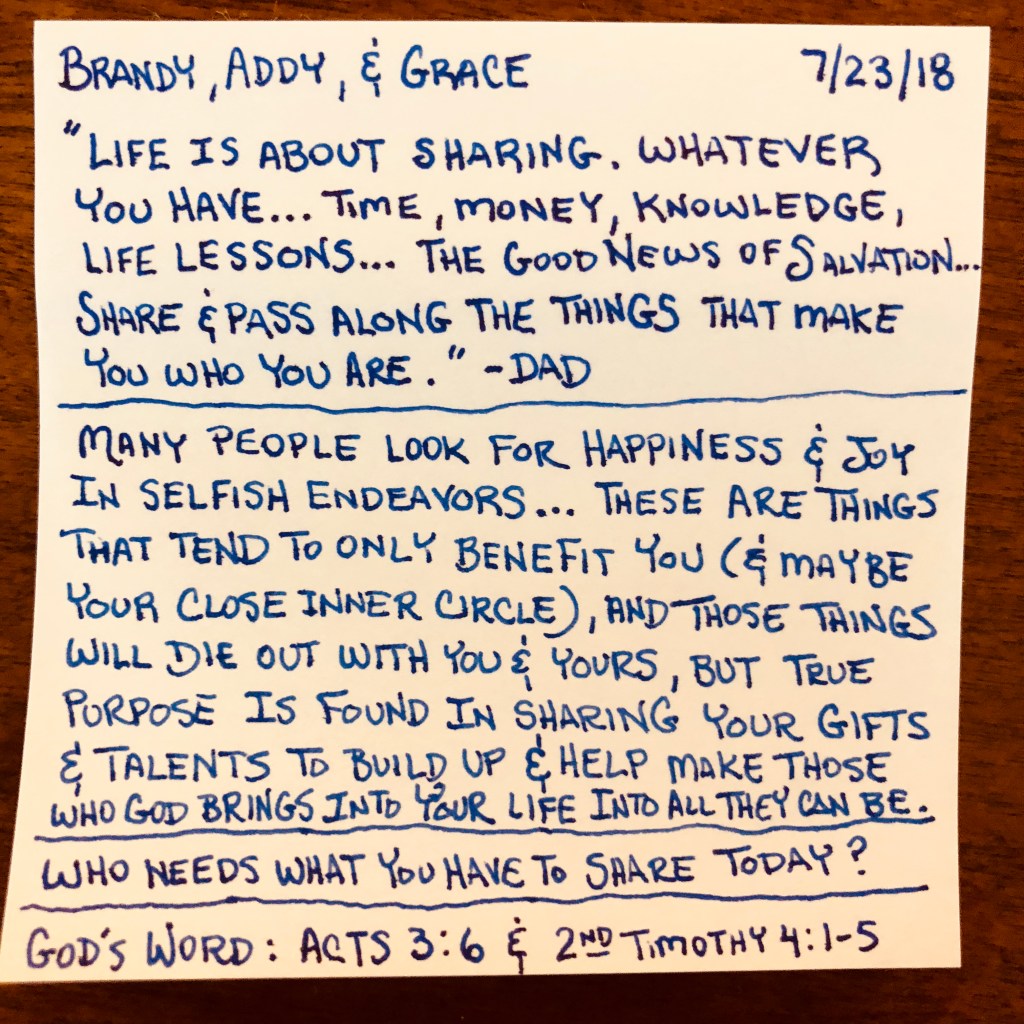 BRANDY, ADDY, & GRACE 7/23/18
"LIFE IS ABOUT SHARING. WHATEVER
YOU HAVE... TIME, MONEY, KNOWLEDGE,
LIFE LESSONS... THE GOOD NEWS OF SALVATION...
SHARE & PASS ALONG THE THINGS THAT MAKE
YOU WHO YOU ARE." -DAD
MANY PEOPLE LOOK FOR HAPPINESS & JOY
IN SELFISH ENDEAVORS... THESE ARE THINGS
THAT TEND TO ONLY BENEFIT YOU (& MAYBE
YOUR CLOSE INNER CIRCLE), AND THOSE THINGS
WILL DIE OUT WITH YOU & YOURS, BUT TRUE
PURPOSE IS FOUND IN SHARING YOUR GIFTS
& TALENTS TO BUILD UP & HELP MAKE THOSE
WHO GOD BRINGS INTO YOUR LIFE INTO ALL THEY CAN BE.
WHO NEEDS WHAT YOU HAVE TO SHARE TODAY?
GOD'S WORD: ACTS 3:6 & 2ND TIMOTHY 4:1-5